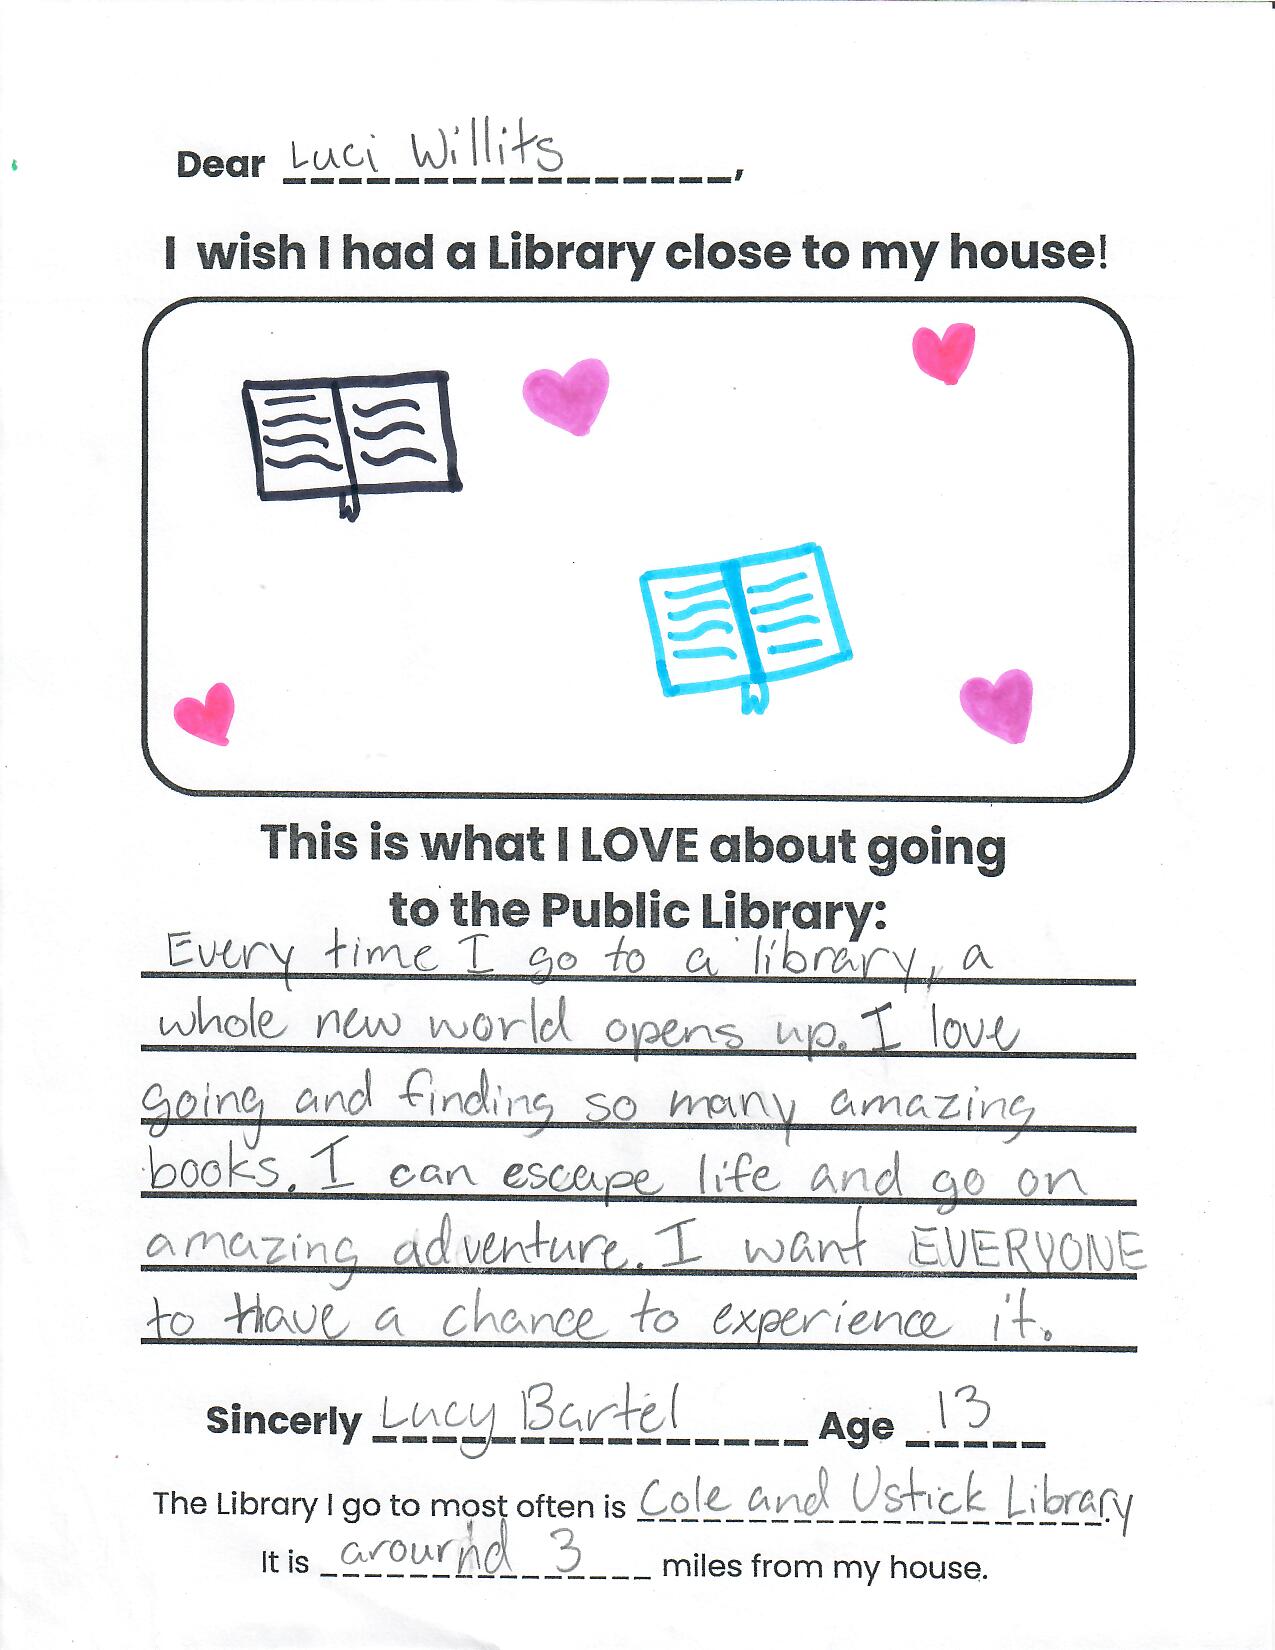 Dear Luci Willits,
I wish I had a Library close to my house!
This is what I LOVE about going
to the Public Library:
Every time I go to a library, a
whole new world opens up. I love
going and finding so many amazing
books. I can escape life and go on
amazing adventure. I want EVERYONE
to Have a chance to experience it.
Sincerly Lucy Bartel Age 13
The Library I go to most often is Cole and Ustick Library.
It is around 3 miles from my house.